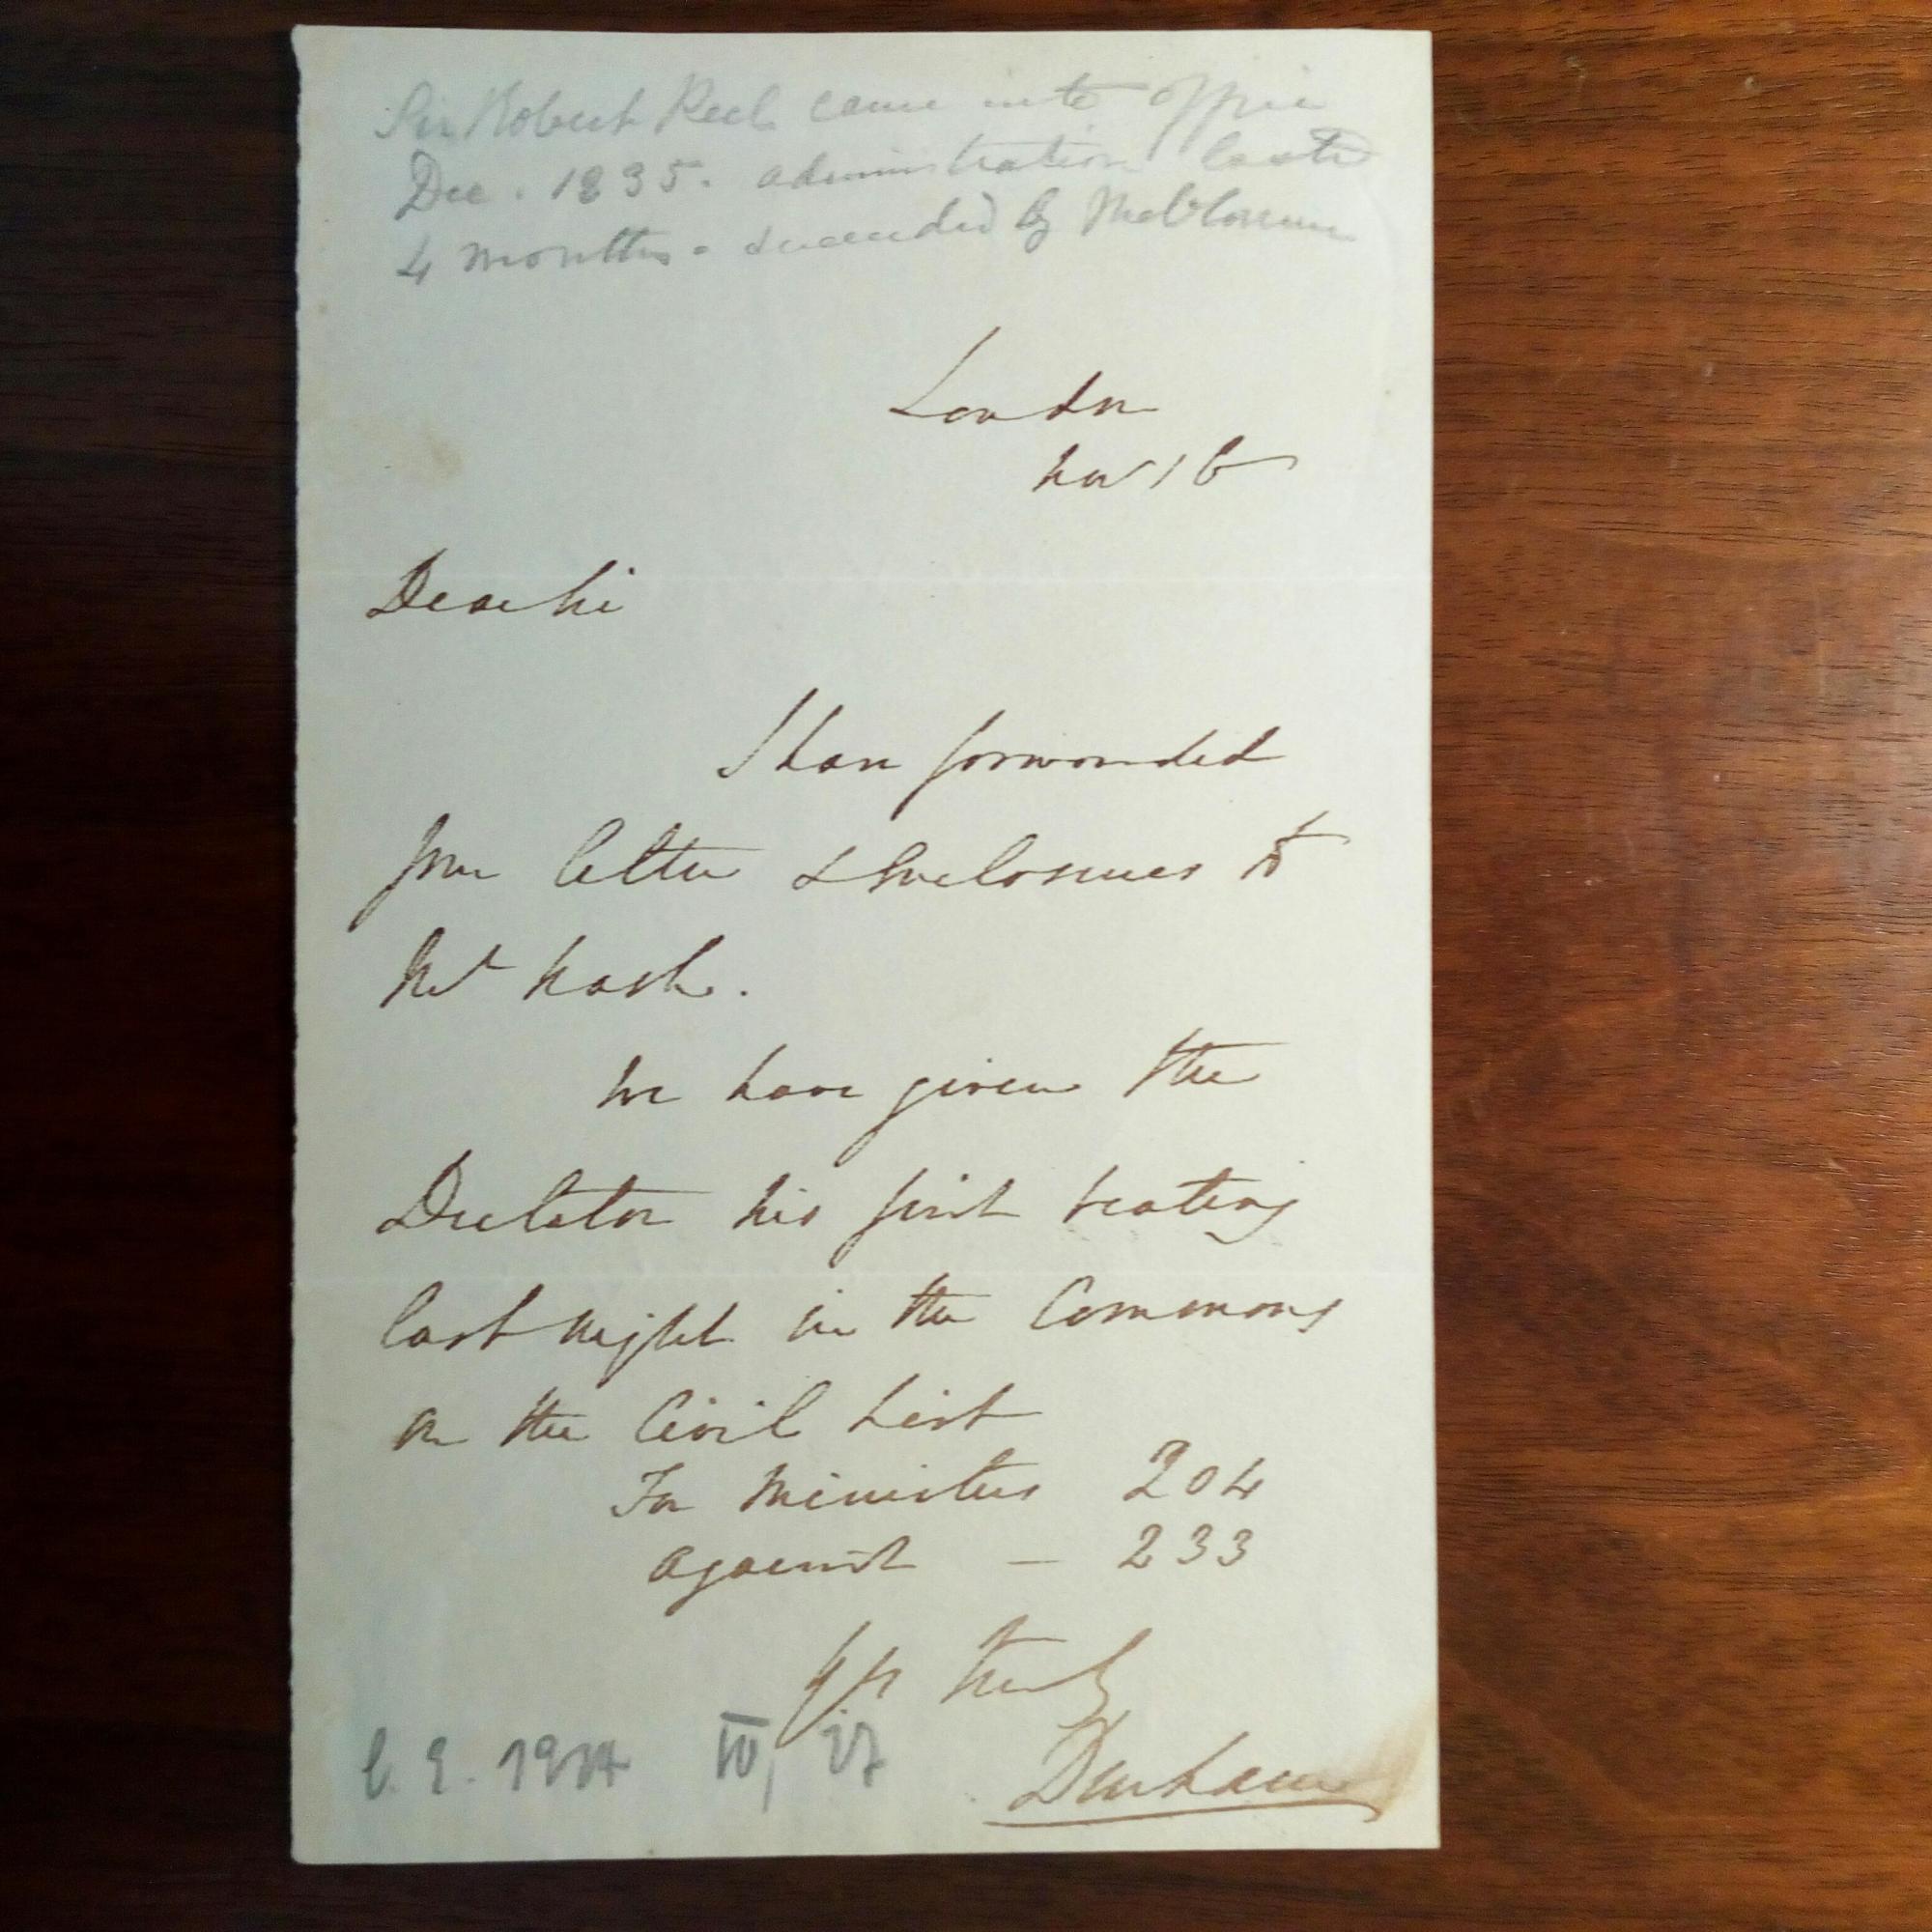 Sir Robert Peel came into office
Dec. 1835. administration lasted
4 months. succeeded by Melbourne
London
Nov 16
Dear Sir
I have forwarded
your letter & Enclosures to
Mr Nash.
We have given the
Dictator his first beating
last night in the Commons
on the Civil List
For Ministers 204
against — 233
Yrs truly
Durham
C. E. 19 IV, 27